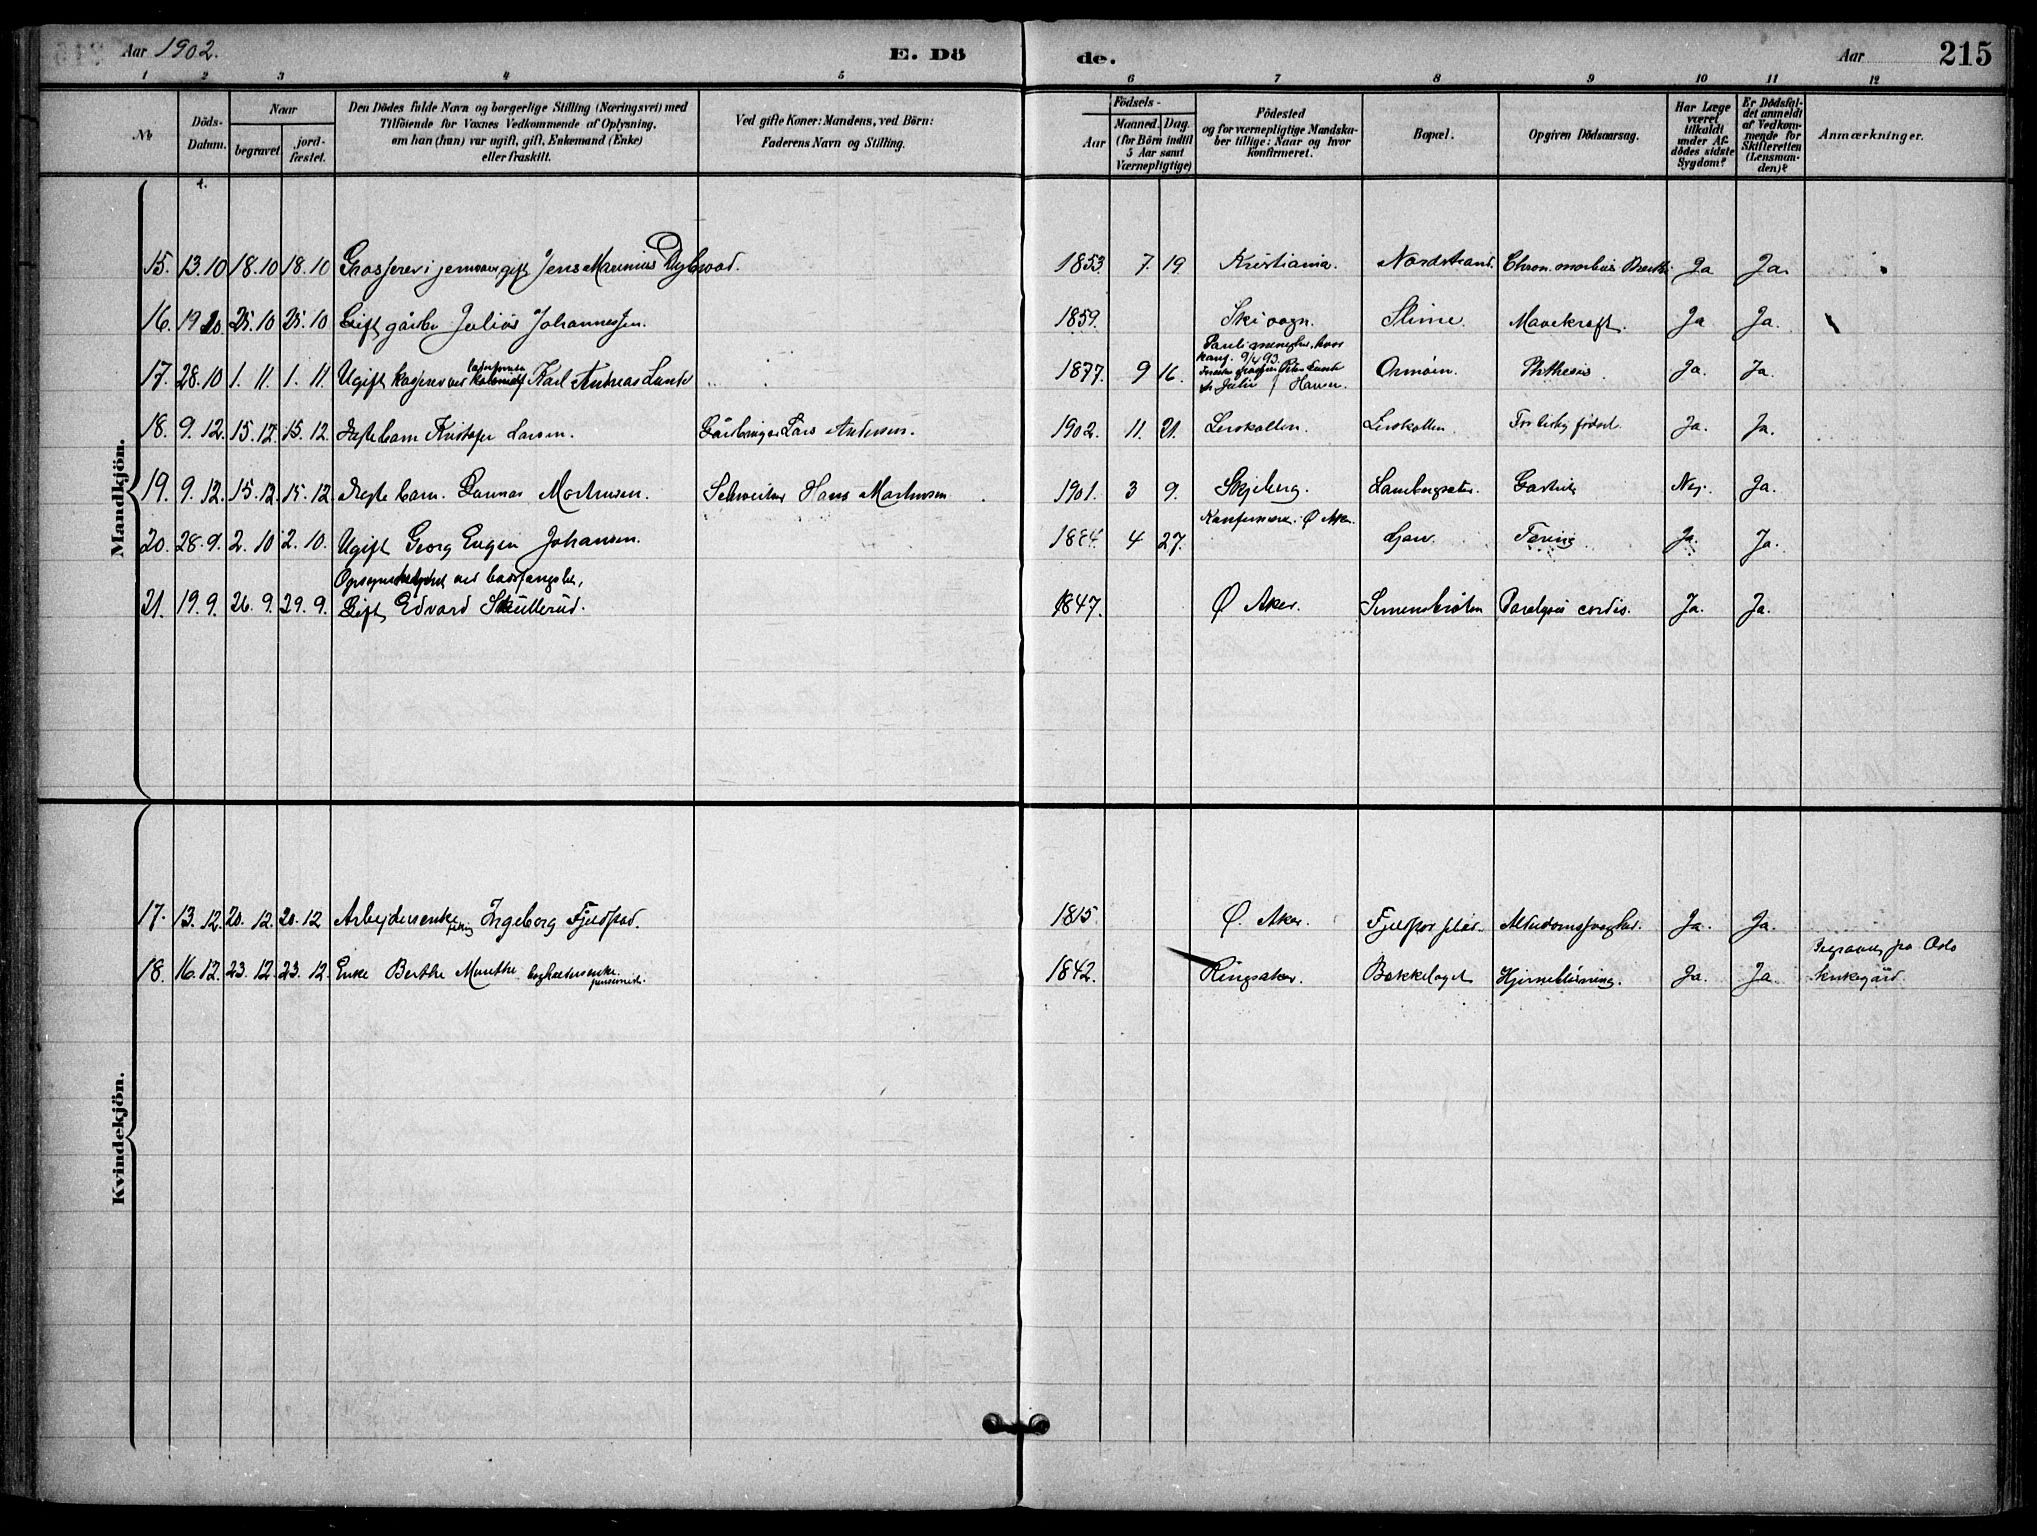 Aar 1902.
E. Dö
de.
Aar
215
1 2 3 4 5 6 7 8 9 10 11 12
No
Döds-Datum.
Naar
begravet
jordfæstet.
Den Dödes fulde Navn og borgerlige Stilling (Næringsvei) med
Tilföiende for Voxnes Vedkommende af Oplysning,
om han (hun) var ugift, gift, Enkemand (Enke)
eller fraskilt.
Ved gifte Koner: Mandens, ved Börn:
Faderens Navn og Stilling.
Födsels-
Aar
Maaned. Dag.
(for Börn indtil
5 Aar samt
Værnepligtige)
Födested
og for værnepligtige Mandska-
ber tillige: Naar og hvor
konfirmeret.
Bopæl.
Opgiven Dödsaarsag.
Har Læge
været
tilkaldt
under Af-
dödes sidste
Sygdom?
Er Dödsfal-
det anmeldt
af Vedkom-
mende for
Skifteretten
(Lensman-
den)?
Anmærkninger.
Mandkjön.
15. 13.10 18.10 18.10 Grosserer i jernvarer gift Jens Marinius 1853. 7. 19 Kristiania. Nordstrand. Chron. morbus Ja Ja.
16. 19 10 25.10 25.10 Gift gårbr Julius Johannessen. 1859. Ski sogn. Slime. Mavekræft. Ja Ja.
17. 28.10 1.11. 1.11. Ugift kasserer ved Karl Andreas Lunde 1877. 9 16. konf. 9/4 93. Hansen. Ormöen. Phthesis. Ja. Ja.
18. 9.12. 15.12. 15.12. Ægte barn Kristofer Larsen. Lars Andersen. 1902. 11. 21. Lerskallen. Lerskallen For tidlig födsel. Ja. Ja.
19. 9.12. 15.12 15.12 Ægte barn. Gunnar Martinsen. Schweitser Hans Martinsen 1901. 3 9. Skjeberg. Gastritis Nej. Ja.
20. 28.9. 2.10 2.10. Ugift Georg Eugen Johansen. 1884. 4 27. Ø Aker. Ljan. Tering Ja. Ja.
Opsynsbetjent ved bodsfængslet,
21. 19.9. 26.9. 29.9. Gift Edvard Skullerud. 1847. Ø Aker. Simensbråten Paralysis cordis. Ja. Ja.
Kvindekjön.
17. 13.12. 20.12. 20.12 Arbejdersenke Ingeborg Fjeldstad. 1815. Ø. Aker. Alderdomssvaghed. Ja. Ja.
18. 16.12. 23.12 23.12. Enke Berthe Munthe. pensionist. 1842. Ringsaker. Bekkelaget Hjerneblödning. Ja. Ja Begravet på Oslo
kirkegård.